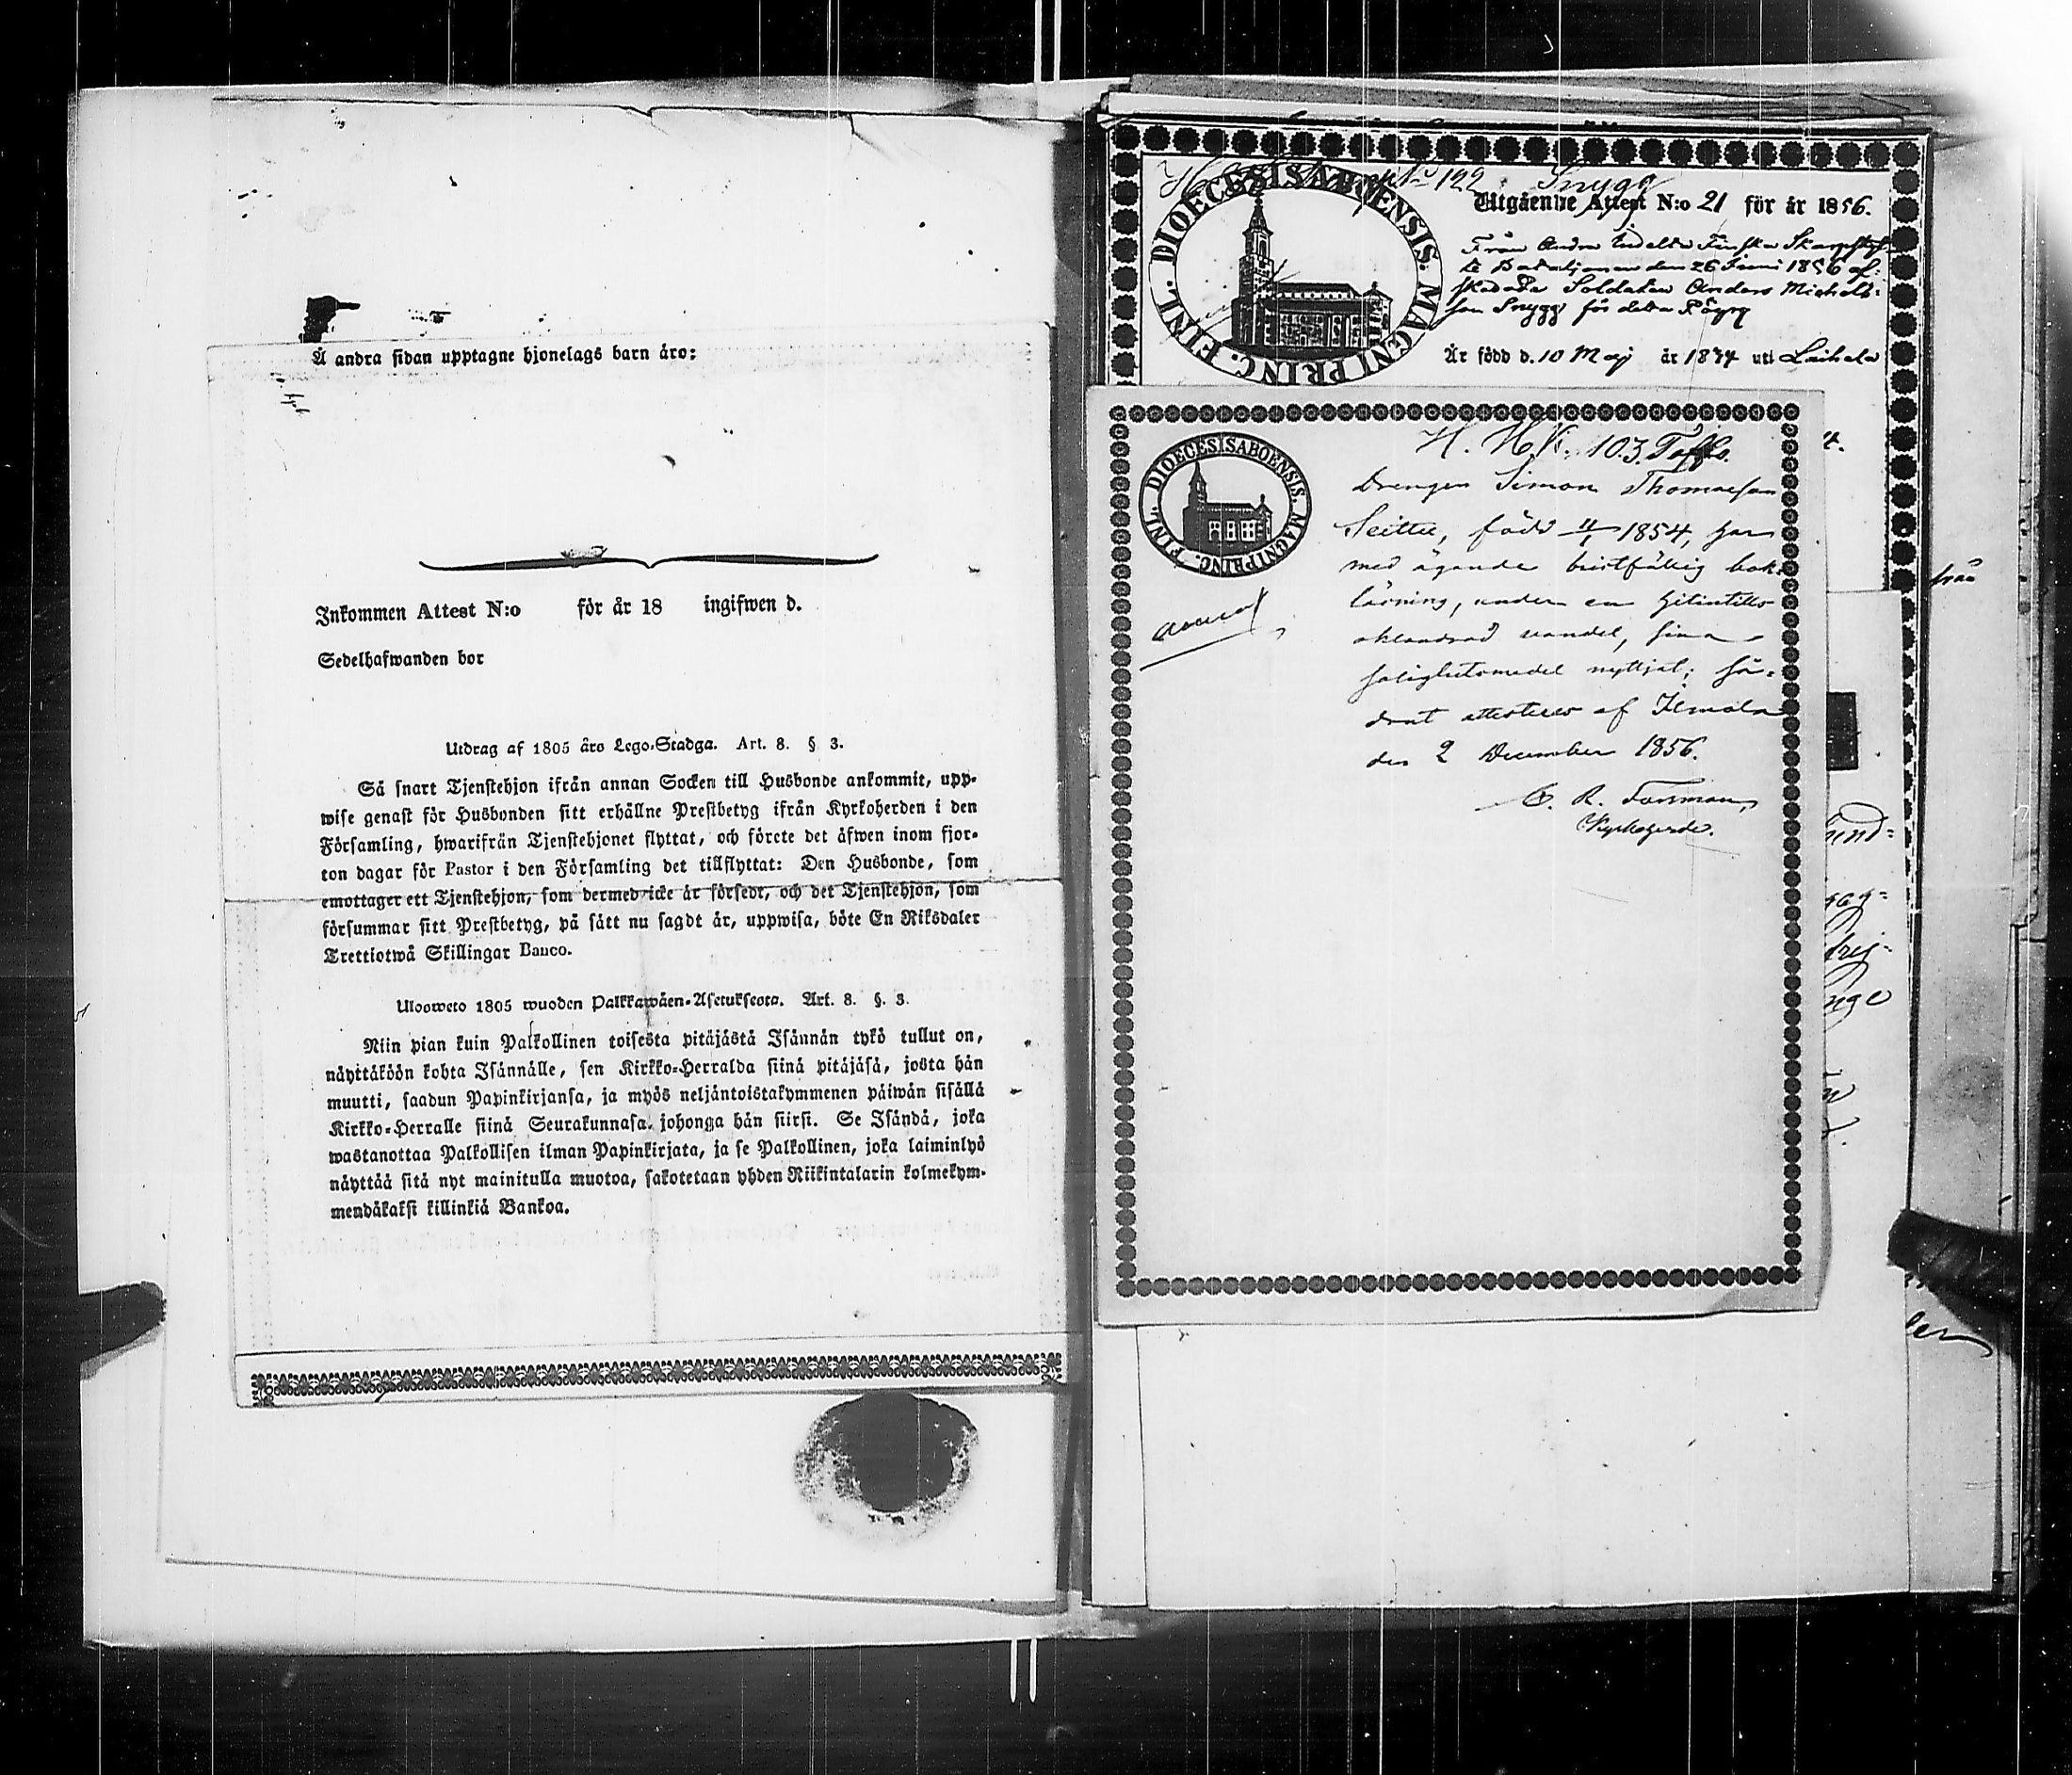 Å andra sidan upptagne hjonelags barn äro:
Inkommen Attest N:o för år 18 ingifwen d.
Sedelhafwanden bor
Utdrag af 1805 års Lego-Stadga. Art. 8. § 3.
Så snart Tjenstehjon ifrån annan Socken till Husbonde ankommit, upp-
wise genast för Husbonden sitt erhållne Prestbetyg ifrån Kyrkoherden i den
Församling, hwarifrån Tjenstehjonet flyttat, och förete det äfwen inom fjor-
ton dagar för Pastor i den Församling det tillflyttat: Den Husbonde, som
emottager ett Tjenstehjon, som dermed icke är försedt, och det Tjenstehjon, som
försummar sitt Prestbetyg, på sätt nu sagdt är, uppwisa, böte En Riksdaler
Trettiotwå Skillingar Banco.
Ulosweto 1805 wuoden Palkkawäen-Asetuksesta. Art. 8. §. 3.
Niin pian kuin Palkollinen toisesta pitäjästä Isännän tykö tullut on,
näyttäköön kohta Isännälle, sen Kirkko-Herralda siinä pitäjäsä, josta hän
muutti, saadun Papinkirjansa, ja myös neljäntoistakymmenen päiwän sisällä
Kirkko-Herralle siinä Seurakunnasa, johonga hän siirsi. Se Isändä, joka
wastanottaa Palkollisen ilman Papinkirjata, ja se Palkollinen, joka laiminlyö
näyttää sitä nyt mainitulla muotoa, sakotetaan yhden Riikintalarin kolmekym-
mendäkaksi killinkiä Bankoa.
DIOECESIS ABOENSIS. MAGNI PRINC. FINL.
No 122 Snygg
Utgående Attest N:o 21 för år 1856.
Från Andra Indelta Finska Skarpskyt-
te Bataljonen den 26 Juni 1856 af-
skedade Soldaten Anders Michels-
son Snygg för detta
Är född d. 10 Maj år 1834 uti Laihela
DIOECESIS ABOENSIS. MAGNI PRINC. FINL.
H. H. N. 103.
Drengen Simon Thomasson
född 1854, har
med ägande bristfällig bok-
läsning, under en hitintills
oklandrad vandel, sina
salighetsmedel nyttjat; så-
dant attesteras af Ilmola
den 2 December 1856.
C. R. Forsman,
Kyrkoherde.
från